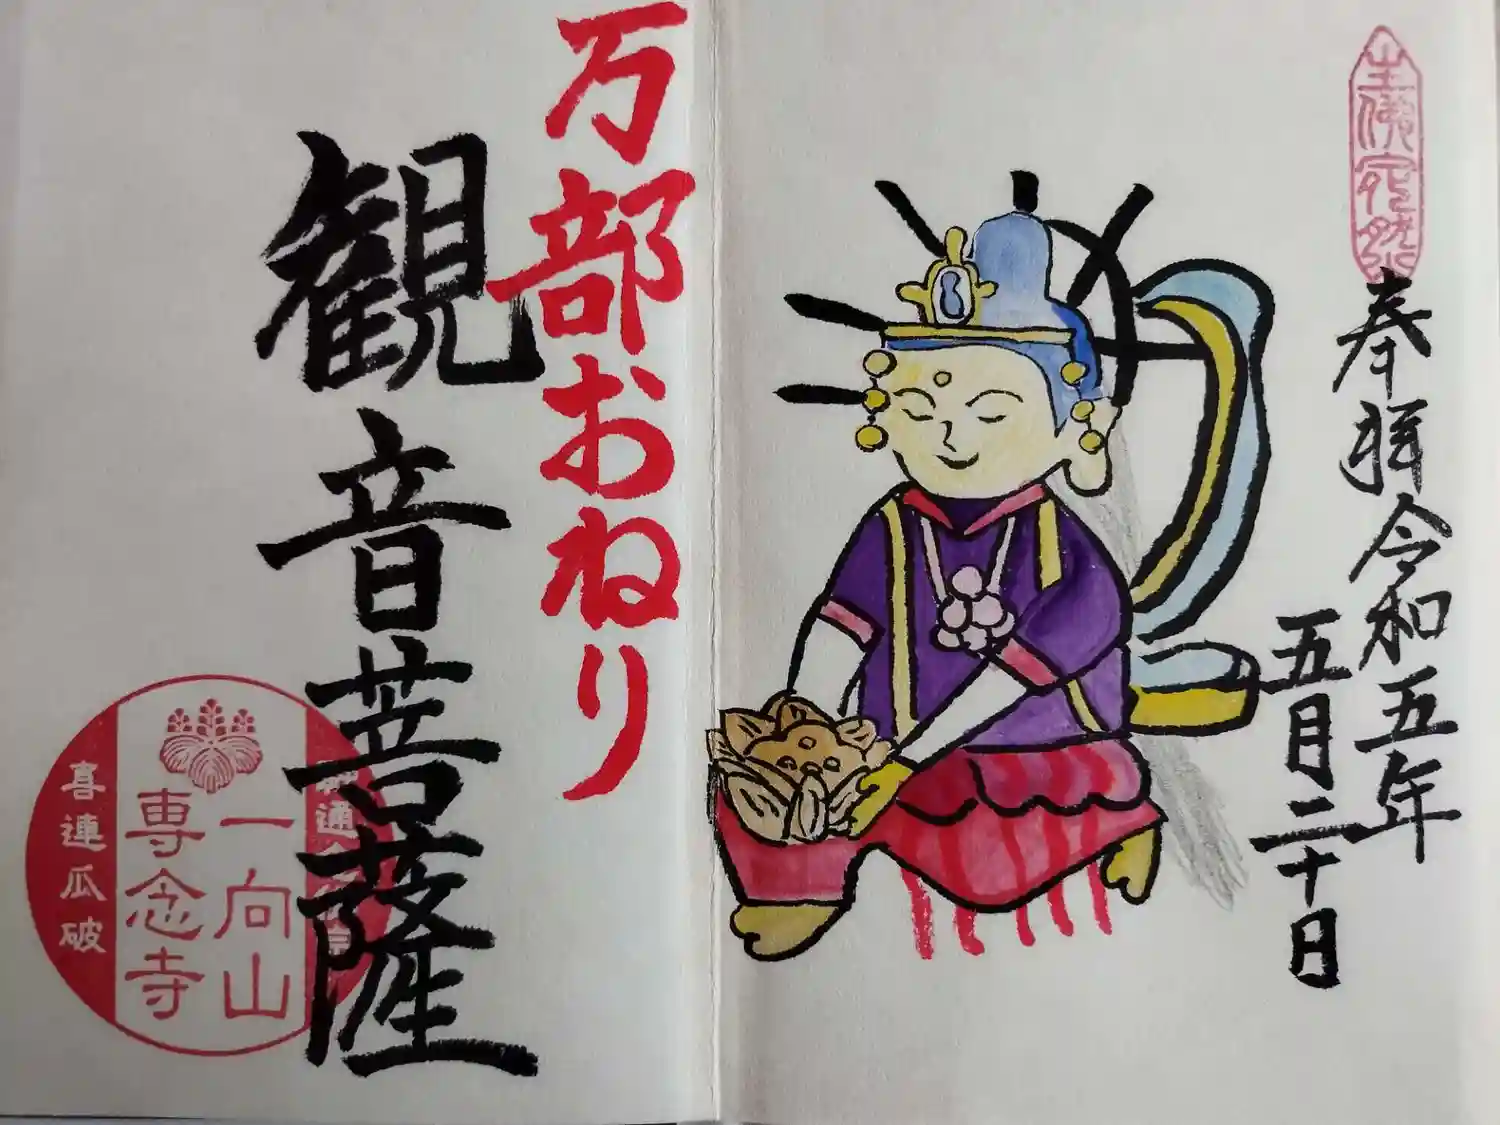 奉拝令和五年
五月二十日
万部おねり
観音菩薩
一向山
専念寺
喜連瓜破